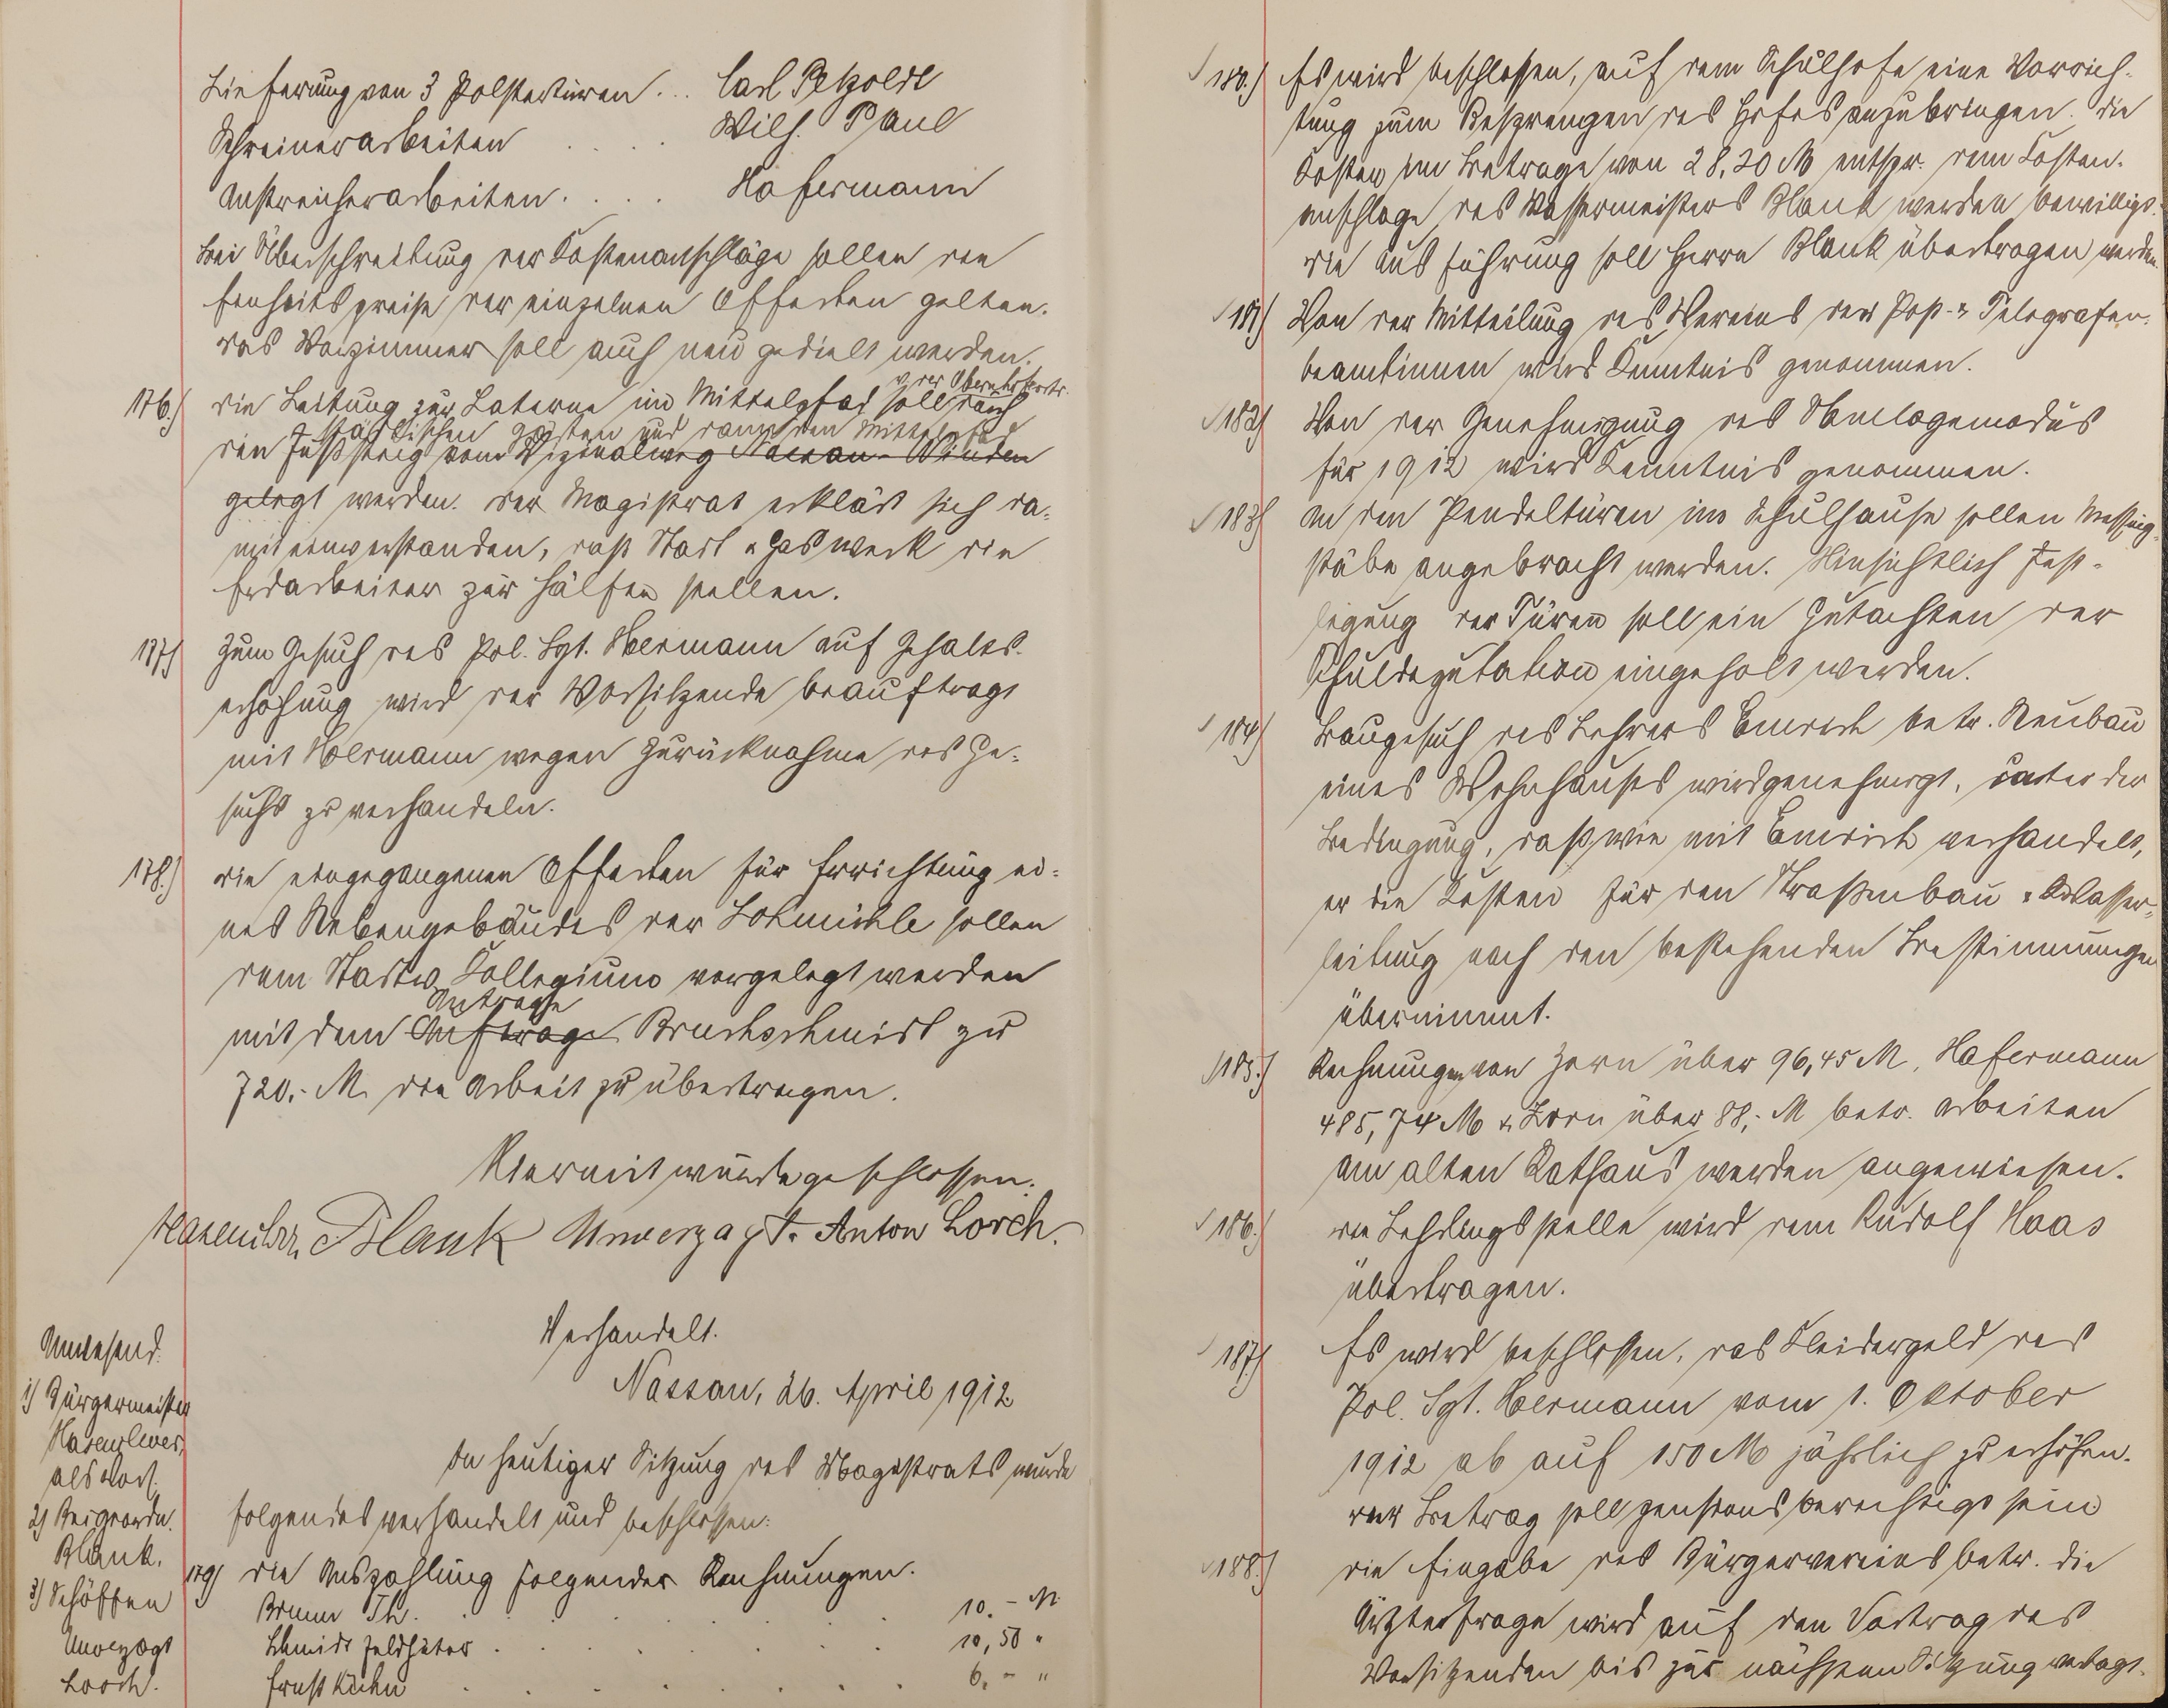 Lieferung von 3 Polstertüren . . . Carl Petzoldt
Schreinerarbeiten . . . . Wilh. Paul
Anstreicherarbeiten . . . . Hafermann
Bei Überschreitung der Kostenanschläge sollen die
Einheitspreise der einzelnen Offerten gelten.
Das Vorzimmer soll auch neu gedielt werden.
176.) Die Leitung zur Laterne im Mittelpfad v. der Obernhoferstr. soll durch
städtischen Garten und dann den Mittelpfad
den Fußsteig vom Vizinalweg Nassau-Winden
gelegt werden. Der Magistrat erklärt sich da-
mit einverstanden, daß Stadt u. Gaswerk die
Erdarbeiter zur Hälfte stellen.
177) Zum Gesuch des Pol. Sgt. Hermann auf Gehalts-
erhöhung wird der Vorsitzende beauftragt
mit Hermann wegen Zurücknahme des Ge-
suchs zu verhandeln.
178.) Die eingegangenen Offerten für Errichtung ei-
nes Nebengebäudes der Lohmühle sollen
dem Stadtv. Kollegium vorgelegt werden
Antrage
mit dem Auftrage Bruchschmidt zu
720.- M. die Arbeit zu übertragen.
Hiermit wurde geschlossen.
Hasenclever, Blank Unverzagt. Anton Lorch.
Verhandelt.
Nassau, 26. April 1912
Anwesend:
1) Bürgermeister
Hasenclever,
als Vors.
2) Beigeordn.
Blank.
3) Schöffen
Unverzagt
Lorch.
In heutiger Sitzung des Magistrats wurde
folgendes verhandelt und beschlossen:
179) Die Auszahlung folgender Rechnungen.
Brunn Th. . . . . . . 10.- M
Schmidt Feldhüter . . . . . . 10,50 "
Ernst Kuhn . . . . . . 6.- "
180.) Es wird beschlossen, auf dem Schulhofe eine Vorrich-
tung zum Besprengen des Hofes anzubringen. Die
Kosten im Betrage von 28,20 M entspr. dem Kosten-
anschlage des Wassermeisters Blank werden bewilligt.
Die Ausführung soll Herrn Blank übertragen werden.
181) Von der Mitteilung des Vereins der Post- u. Telegrafen-
beamtinnen wird Kenntnis genommen.
182) Von der Genehmigung des Umlagemodus
für 1912 wird Kenntnis genommen.
183) An den Pendeltüren im Schulhause sollen Messing-
stäbe angebracht werden. Hinsichtlich Fest-
legung der Türen soll ein Gutachten der
Schuldeputation eingeholt werden.
184) Baugesuch des Lehrers Emrich betr. Neubau
eines Wohnhauses wird genehmigt, unter der
Bedingung, daß, wie mit Emrich verhandelt,
er die Kosten für den Straßenbau u. Wasser-
leitung nach den bestehenden Bestimmungen
übernimmt.
185.) Rechnungen von Zorn über 96,45 M, Hafermann
485,74 M & Zorn über 88,- M betr. Arbeiten
am alten Rathaus werden angewiesen.
186.) Die Lehrlingsstelle wird dem Rudolf Haas
übertragen.
187) Es wird beschlossen, das Kleidergeld des
Pol. Sgt. Hermann vom 1. Oktober
1912 ab auf 150 M jährlich zu erhöhen.
Der Betrag soll pensionsberechtigt sein
188.) Die Eingabe des Bürgervereins betr. die
Ärztefrage wird auf den Vortrag des
Vorsitzenden bis zur nächsten Sitzung vertagt.